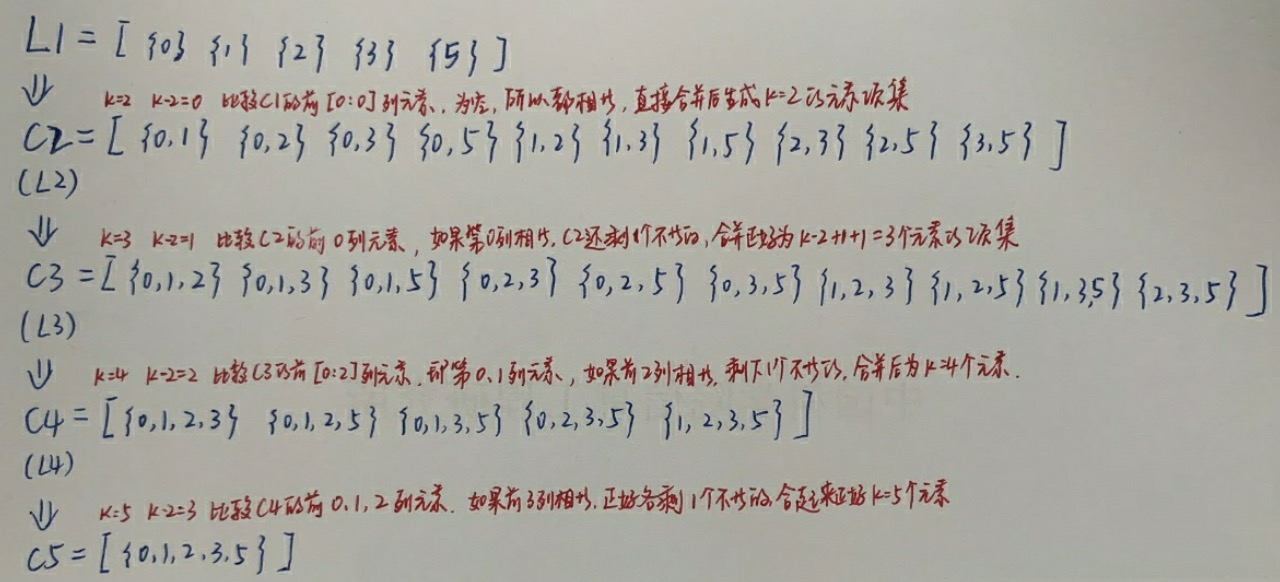 L1 = [ {0} {1} {2} {3} {5} ]
⇓ k=2 k-2=0 比较C1的前[0:0]列元素, 为空, 所以都相等, 直接合并后生成k=2的元素项集
C2 = [ {0,1} {0,2} {0,3} {0,5} {1,2} {1,3} {1,5} {2,3} {2,5} {3,5} ]
(L2)
⇓ k=3 k-2=1 比较C2的前0列元素, 如果第0列相等, C2还剩1个不等的, 合并正好为k-2+1+1=3个元素的项集
C3 = [ {0,1,2} {0,1,3} {0,1,5} {0,2,3} {0,2,5} {0,3,5} {1,2,3} {1,2,5} {1,3,5} {2,3,5} ]
(L3)
⇓ k=4 k-2=2 比较C3的前[0:2]列元素, 即第0.1列元素, 如果前2列相等, 剩下1个不等的, 合并后为k=4个元素.
C4 = [ {0,1,2,3} {0,1,2,5} {0,1,3,5} {0,2,3,5} {1,2,3,5} ]
(L4)
⇓ k=5 k-2=3 比较C4的前0.1.2列元素. 如果前3列相等, 正好各剩1个不等的, 合起来正好k=5个元素
C5 = [ {0,1,2,3,5} ]